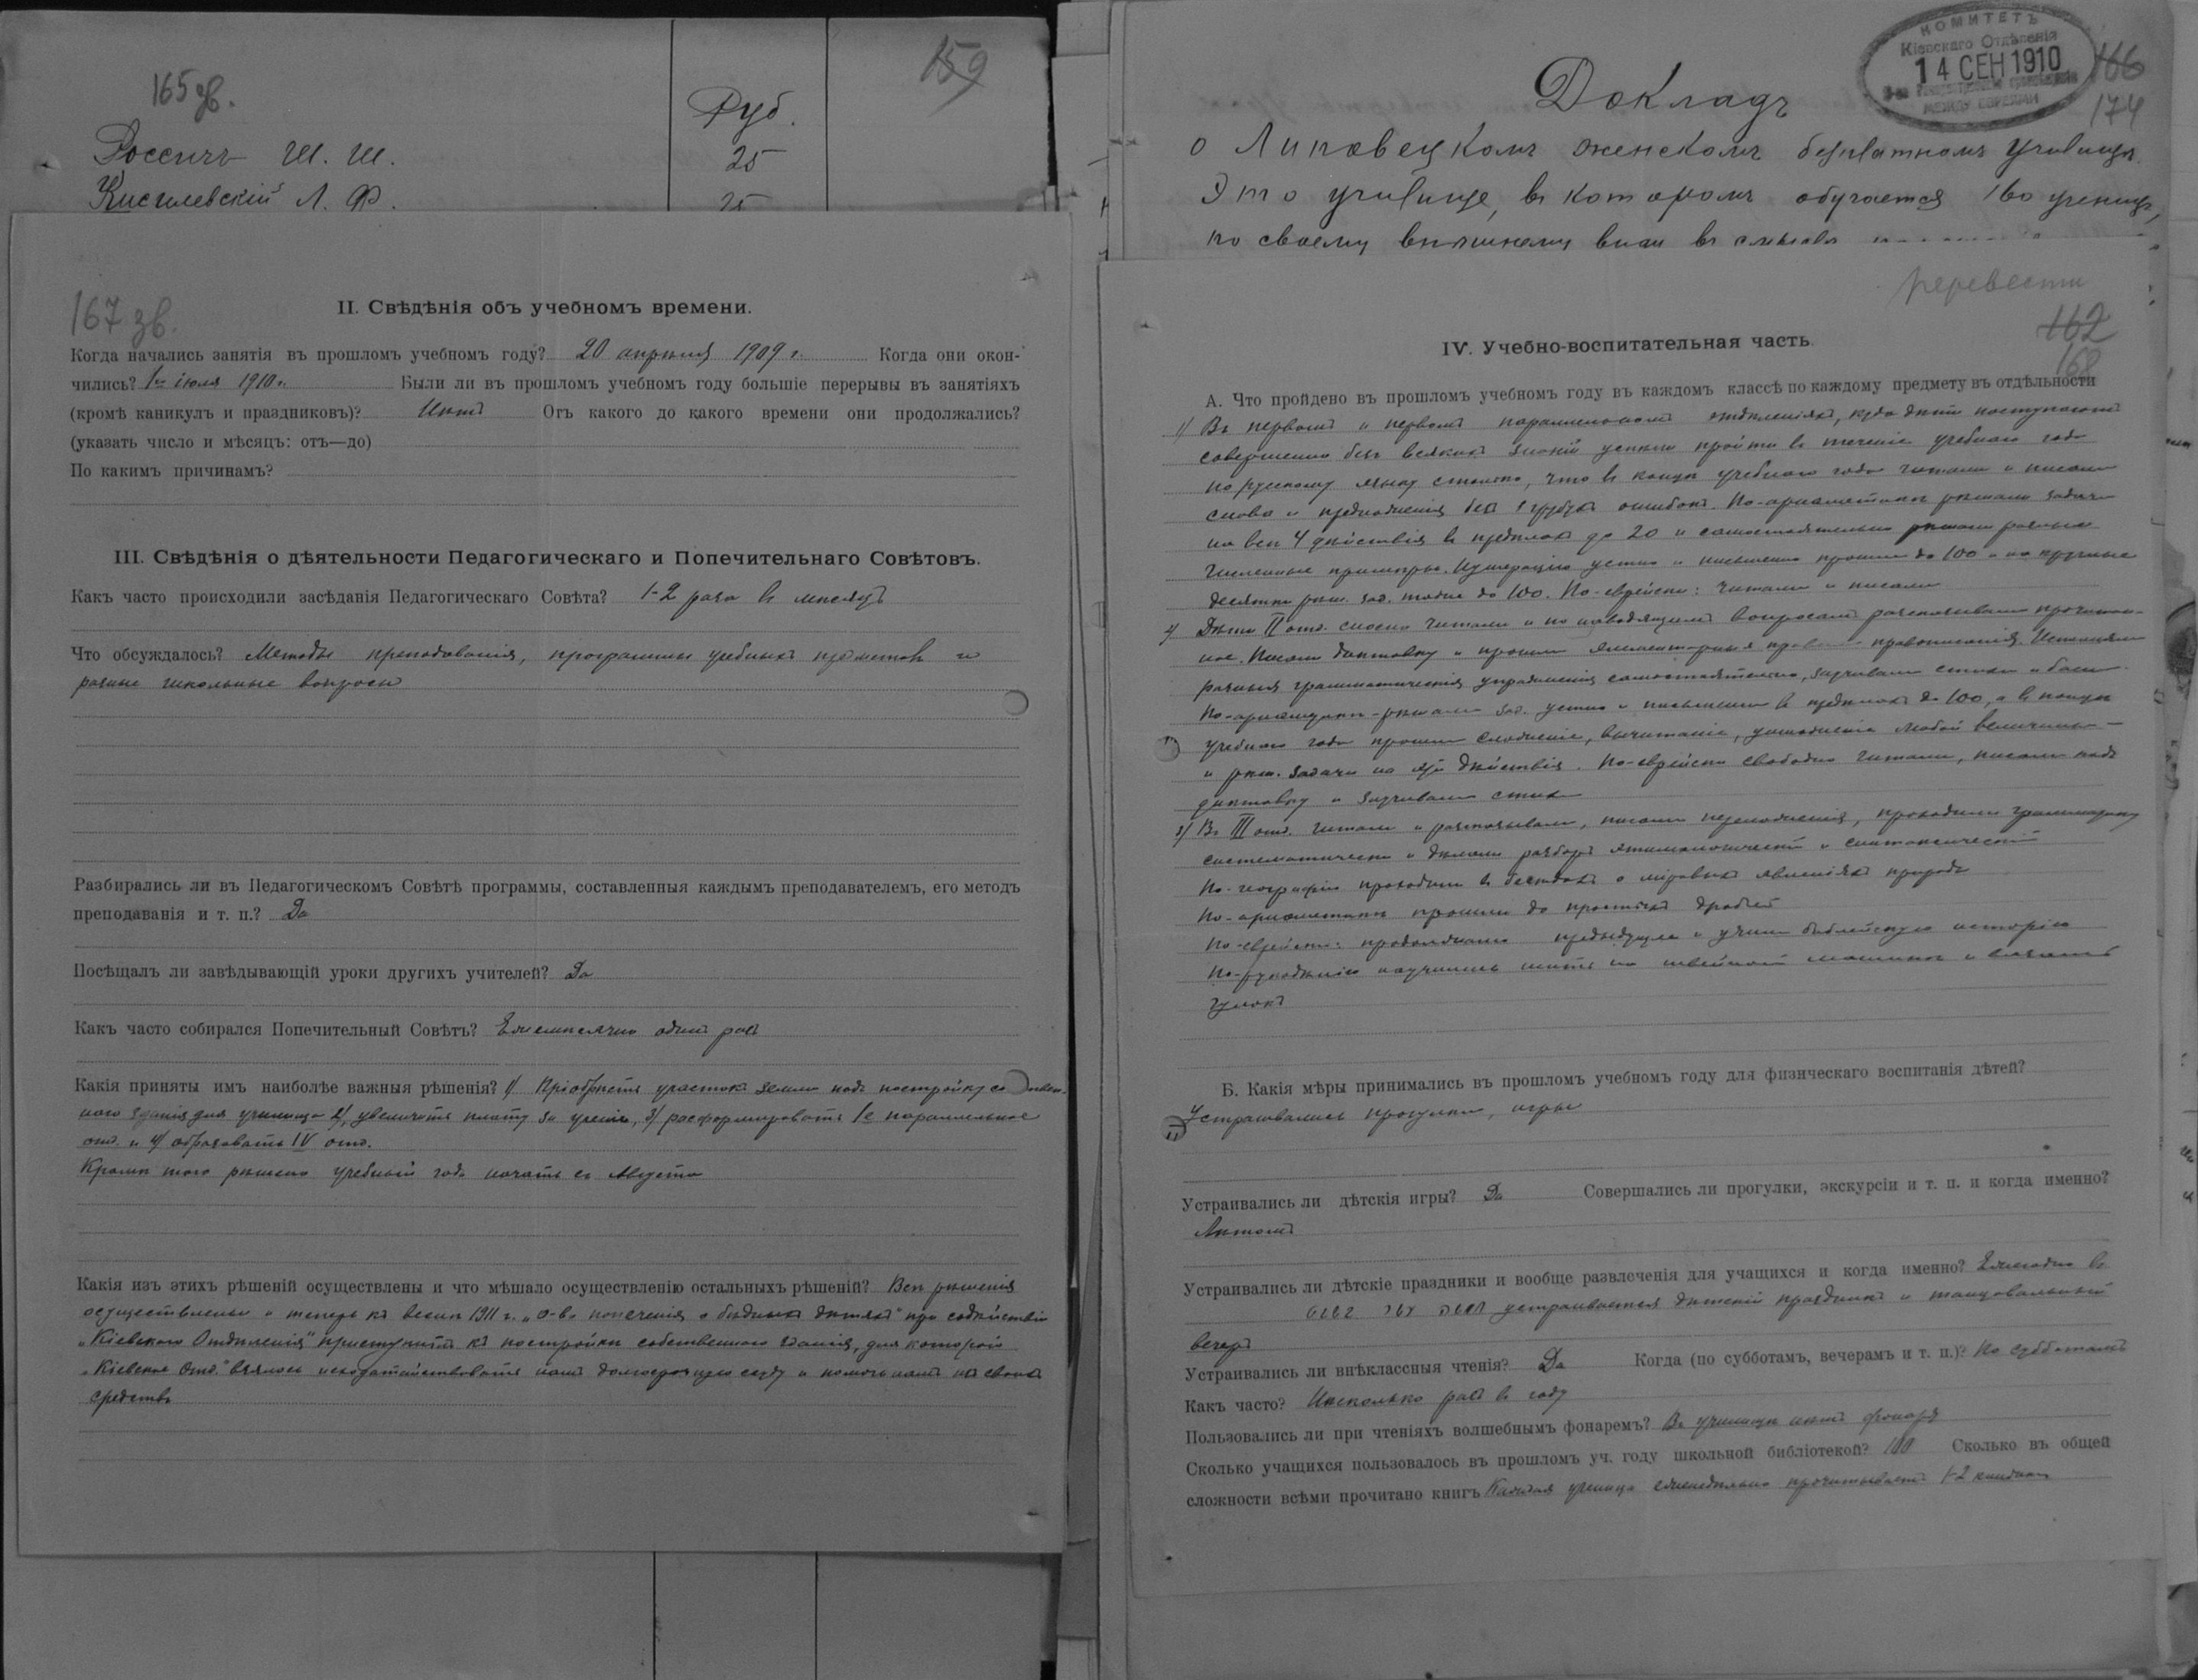 165 зв.
159
Руб.
Россинъ Ш. Ш. 25
Кисилевскій Л. Ф. 25
167 зв.
II. Свѣдѣнія объ учебномъ времени.
Когда начались занятія въ прошломъ учебномъ году? 20 апрѣля 1909 г. Когда они окон-
чились? 1-го іюля 1910 г. Были ли въ прошломъ учебномъ году большіе перерывы въ занятіяхъ
(кромѣ каникулъ и праздниковъ)? Нѣтъ Отъ какого до какого времени они продолжались?
(указать число и мѣсяцъ: отъ—до)
По какимъ причинамъ?
III. Свѣдѣнія о дѣятельности Педагогическаго и Попечительнаго Совѣтовъ.
Какъ часто происходили засѣданія Педагогическаго Совѣта? 1-2 раза въ мѣсяцъ
Что обсуждалось? Методы преподаванія, программы учебныхъ предметовъ и
разные школьные вопросы
Разбирались ли въ Педагогическомъ Совѣтѣ программы, составленныя каждымъ преподавателемъ, его методъ
преподаванія и т. п.? Да
Посѣщалъ ли завѣдывающій уроки другихъ учителей? Да
Какъ часто собирался Попечительный Совѣтъ? Ежемѣсячно одинъ разъ
Какія приняты имъ наиболѣе важныя рѣшенія? 1) Пріобрѣсти участокъ земли подъ постройку собствен-
наго зданія для училища 2) увеличить плату за ученіе, 3) расформировать 1е параллельное
отд. и 4) образовать IV отд.
Кромѣ того рѣшено учебный годъ начать съ Августа
Какія изъ этихъ рѣшеній осуществлены и что мѣшало осуществленію остальныхъ рѣшеній? Всѣ рѣшенія
осуществлены и теперь къ веснѣ 1911 г. „О-во попеченія о бѣдныхъ дѣтяхъ" при содѣйствіи
„Кіевскаго Отдѣленія" приступитъ къ постройкѣ собственнаго зданія, для которой
„Кіевское Отд." взялось исходатайствовать намъ долгосрочную ссуду и помочь намъ изъ своихъ
средствъ
КОМИТЕТЪ
Кіевскаго Отдѣленія
14 СЕН 1910
МЕЖДУ ЕВРЕЯМИ
166
174
Докладъ
о Липовецкомъ женскомъ безплатномъ училищѣ.
Это училище, въ которомъ обучается 160 ученицъ,
по своему внѣшнему виду въ смыслѣ
перевести
162
168
IV. Учебно-воспитательная часть.
А. Что пройдено въ прошломъ учебномъ году въ каждомъ классѣ по каждому предмету въ отдѣльности
1) Въ первомъ и первомъ параллельномъ отдѣленіяхъ, куда дѣти поступаютъ
совершенно безъ всякихъ знаній успѣли пройти въ теченіе учебнаго года
по русскому языку столько, что въ концѣ учебнаго года читали и писали
слова и предложенія безъ грубыхъ ошибокъ. По-ариѳметикѣ рѣшали задачи
на всѣ 4 дѣйствія въ предѣлахъ до 20 и самостоятельно рѣшали разные
численные примѣры. Нумерацію устно и письменно прошли до 100 и на круглые
десятки рѣш. зад. тоже до 100. По-еврейски: читали и писали
2) Дѣти II отд. читали и по наводящимъ вопросамъ разсказывали прочитан-
ное. Писали диктовку и прошли элементарныя правила правописанія. Исполняли
разныя грамматическія упражненія самостоятельно, заучивали стихи и басни.
По-ариѳметикѣ - рѣшали зад. устно и письменно въ предѣлахъ до 100, а въ концѣ
учебнаго года прошли сложеніе, вычитаніе, умноженіе любой величины —
и рѣш. задачи на эти дѣйствія. По-еврейски свободно читали, писали подъ
диктовку и заучивали стихи
3) Въ III отд. читали и разсказывали, писали переложенія, проходили грамматику
систематически и дѣлали разборъ этимологическій и синтаксическій
По-географіи проходили въ бесѣдахъ о міровыхъ явленіяхъ природы
По-ариѳметикѣ прошли до простыхъ дробей
По-еврейски: продолжали предыдущее и учили библейскую исторію
По-рукодѣлію научились шить на швейной машинѣ и вязать
чулокъ
Б. Какія мѣры принимались въ прошломъ учебномъ году для физическаго воспитанія дѣтей?
Устраивались прогулки, игры
Устраивались ли дѣтскія игры? Да Совершались ли прогулки, экскурсіи и т. п. и когда именно?
Лѣтомъ
Устраивались ли дѣтскіе праздники и вообще развлеченія для учащихся и когда именно? Ежегодно въ
устраивается дѣтскій праздникъ и танцовальный
вечеръ
Устраивались ли внѣклассныя чтенія? Да Когда (по субботамъ, вечерамъ и т. п.)? По субботамъ
Какъ часто? Нѣсколько разъ въ году
Пользовались ли при чтеніяхъ волшебнымъ фонаремъ? Въ училищѣ нѣтъ фонаря
Сколько учащихся пользовалось въ прошломъ уч. году школьной библіотекой? 100 Сколько въ общей
сложности всѣми прочитано книгъ Каждая ученица еженедѣльно прочитываетъ 1-2 книжки